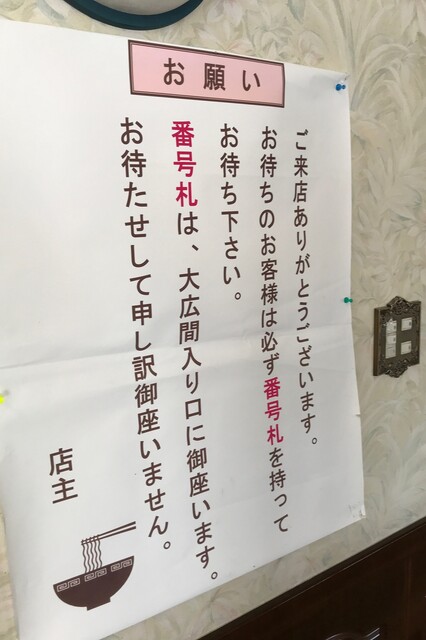 お願い
ご来店ありがとうございます。
お待ちのお客様は必ず番号札を持って
お待ち下さい。
番号札は、大広間入り口に御座います。
お待たせして申し訳御座いません。
店主